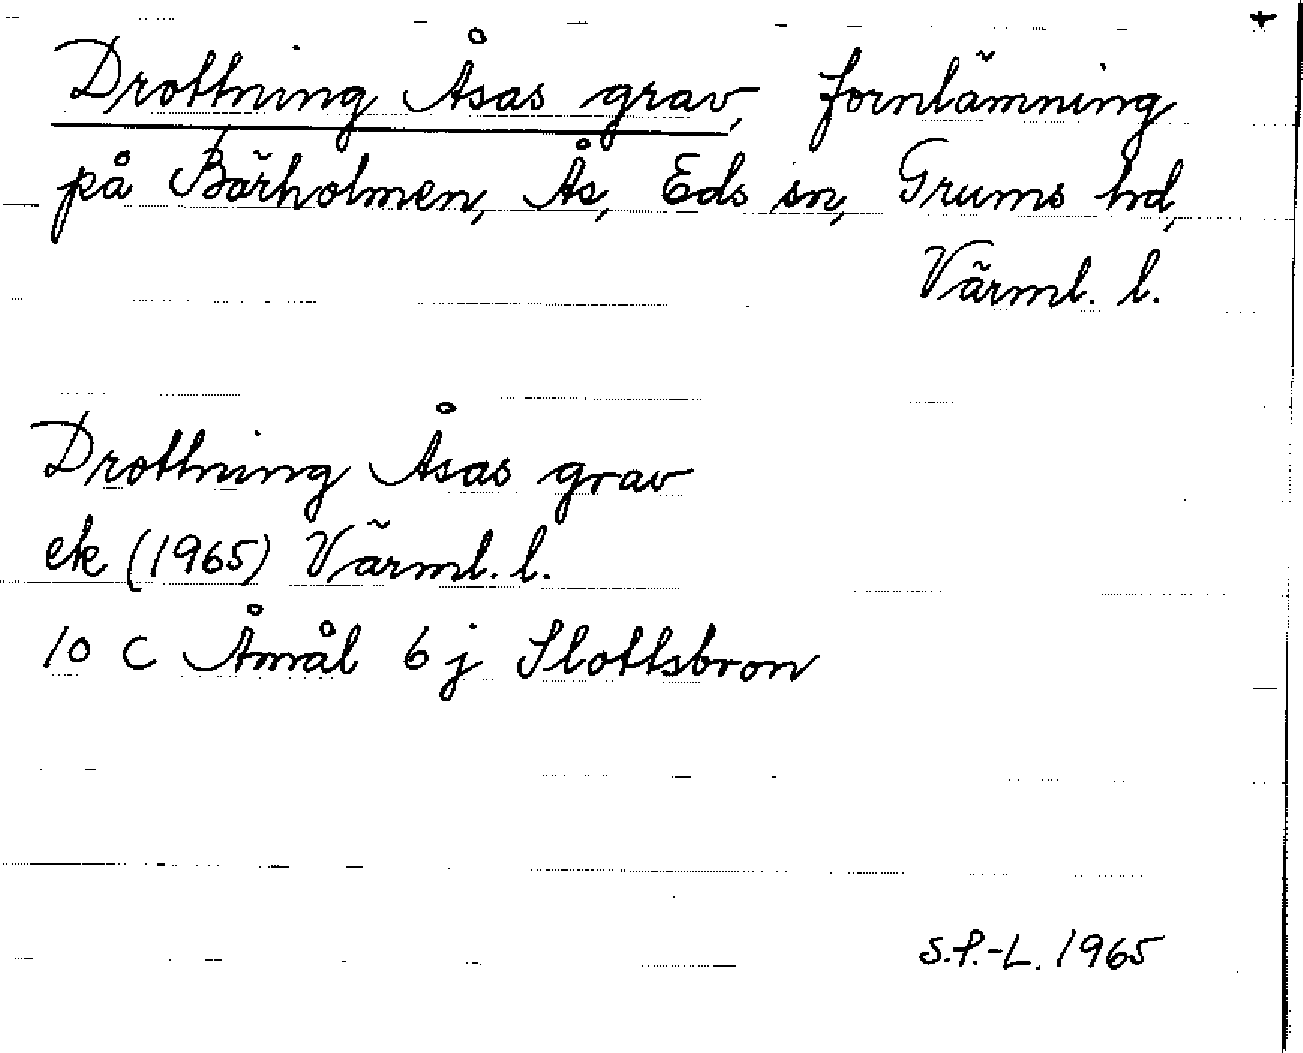 Drottning Åsas grav, fornlämning
på Bärholmen, Ås, Eds sn, Grums hd,
Värml. l.
Drottning Åsas grav
ek (1965) Värml. l.
10 C Åmål 6 j Slottsbron
S.P.-L. 1965